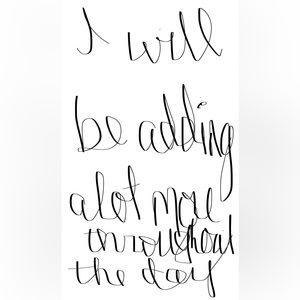 I will
be adding
alot more
throughout
the day